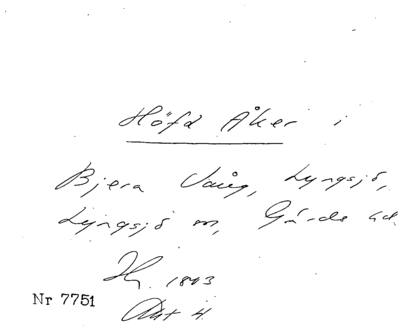 Höfd Åker i
Bjera Vång, Lyngsjö,
Lyngsjö sn, Gärds hd.
1843
Nr 7751
Akt 4.